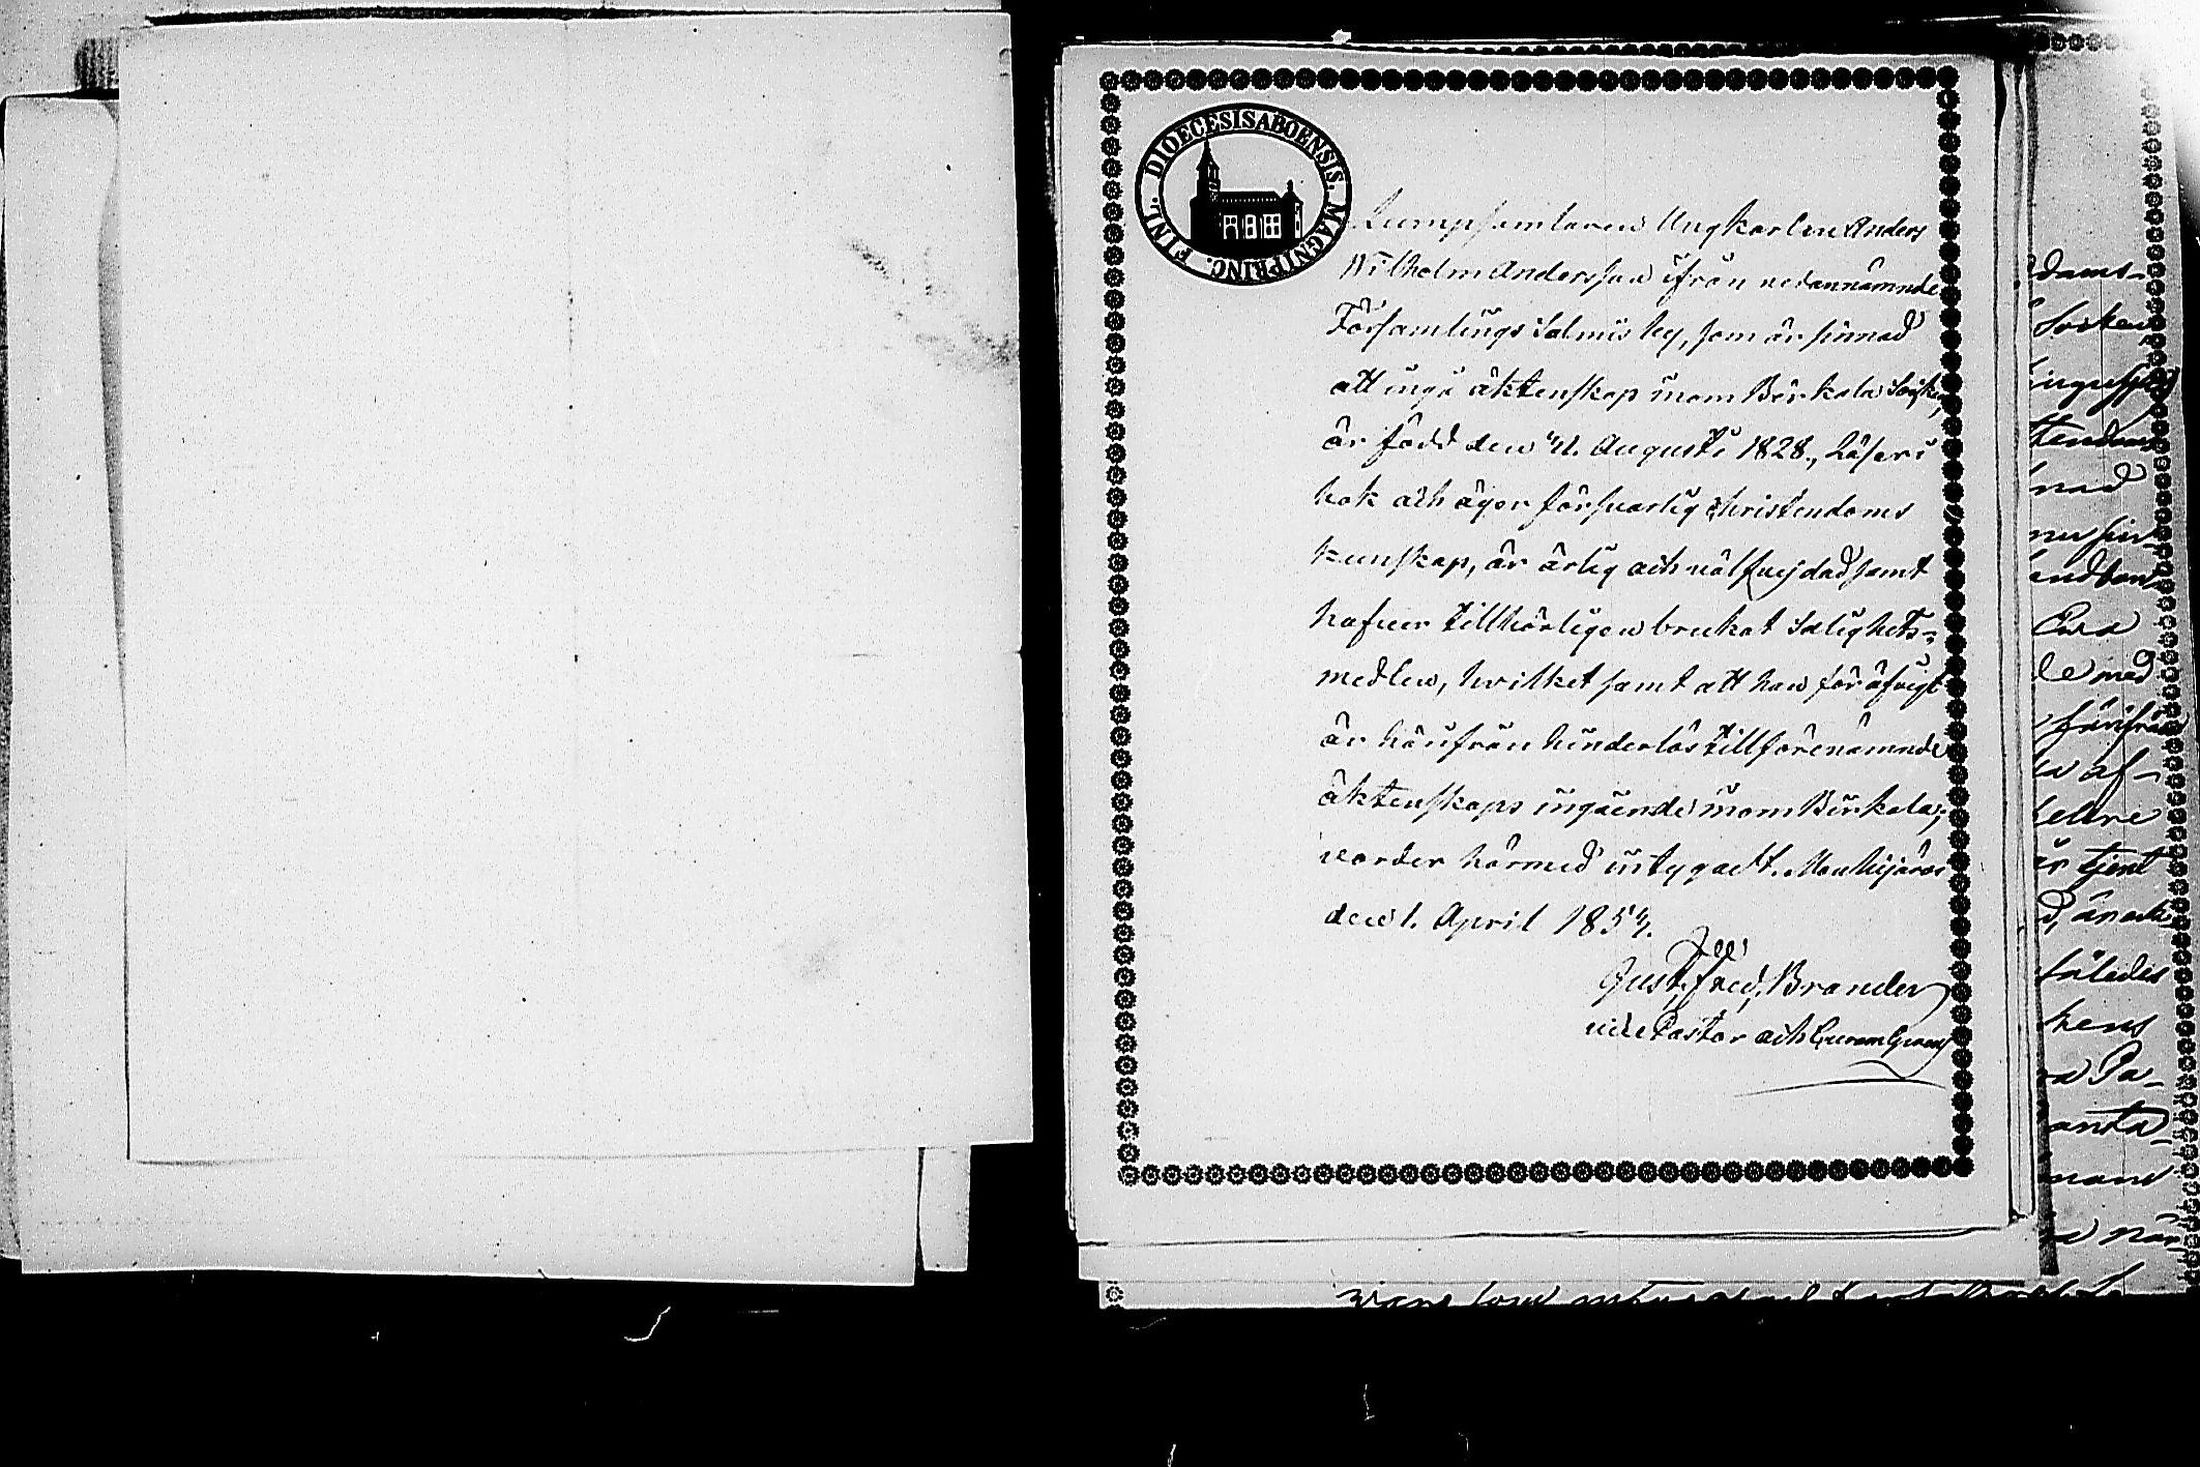 DIOECESIS ABOENSIS. MAGNI PRINC. FINL.
Lumpsamlaren Ungkarlen Anders
Wilhelm Andersson ifrån nedannämnde
Församlings Salmis by, som är sinnad
att ingå äktenskap inom Birkala Socken,
är född den 4. Augusti 1828., Läser i
bok och äger försvarlig Christendoms
kunskap, är ärlig och välfrejdad samt
hafver tillbörligen brukat Salighets-
medlen, hvilket samt att han för öfrigt
är härifrån hinderlös till förenämnde
äktenskaps ingående inom Birkala,
varder härmed intygadt. Mouhijärvi
den 1. April 1854.
Gust. Fred. Brander
vice Pastor och
dams-
Socken
nad
Ewa
de med
härifrån
af-
ellre
är tjent
således
kens
Pa-